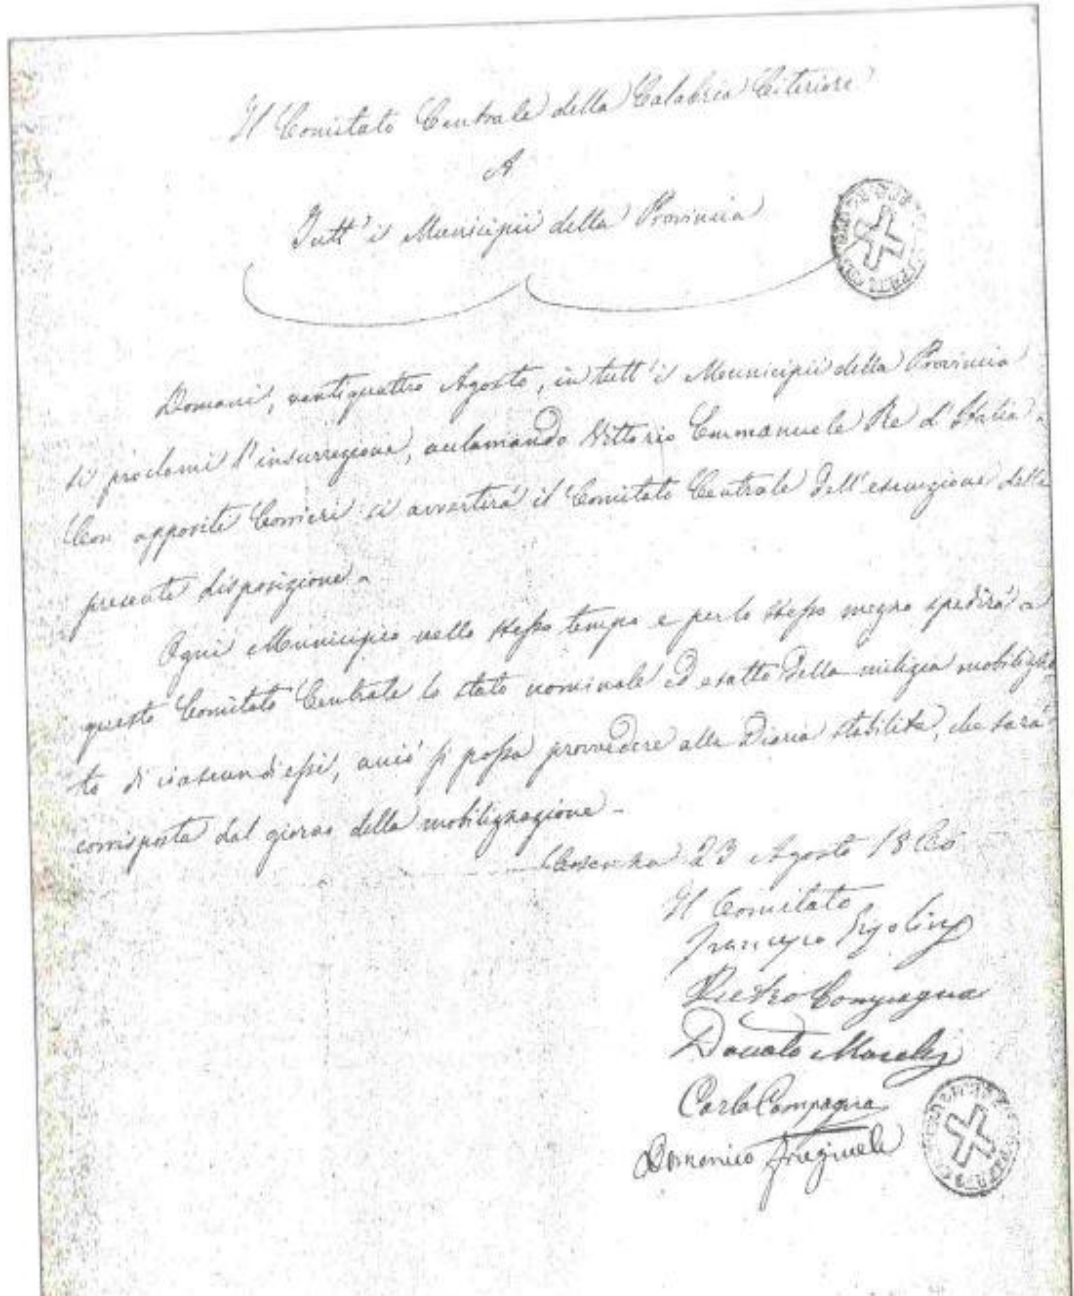 Il Comitato Centrale della Calabria Citeriore
A
Tutt'i Municipii della Provincia
Domani, ventiquattro Agosto, in tutt'i Municipii della Provincia
si proclami l'insurrezione, acclamando Vittorio Emmanuele Re d'Italia.
Con appositi Corrieri si avvertirà il Comitato Centrale dell'esecuzione della
presente disposizione.
Ogni Municipio nello stesso tempo e per lo stesso mezzo spedirà a
questo Comitato Centrale lo stato nominale ed esatto della milizia mobilizza
ta di ciascun di essi, acciò si possa provvedere alla Diaria stabilita, che sarà
corrisposta dal giorno della mobilizzazione.
Cosenza 23 Agosto 1860
Il Comitato
Francesco
Pietro Compagna
Donato Morelli
Carlo Compagna
Domenico Frugiuele